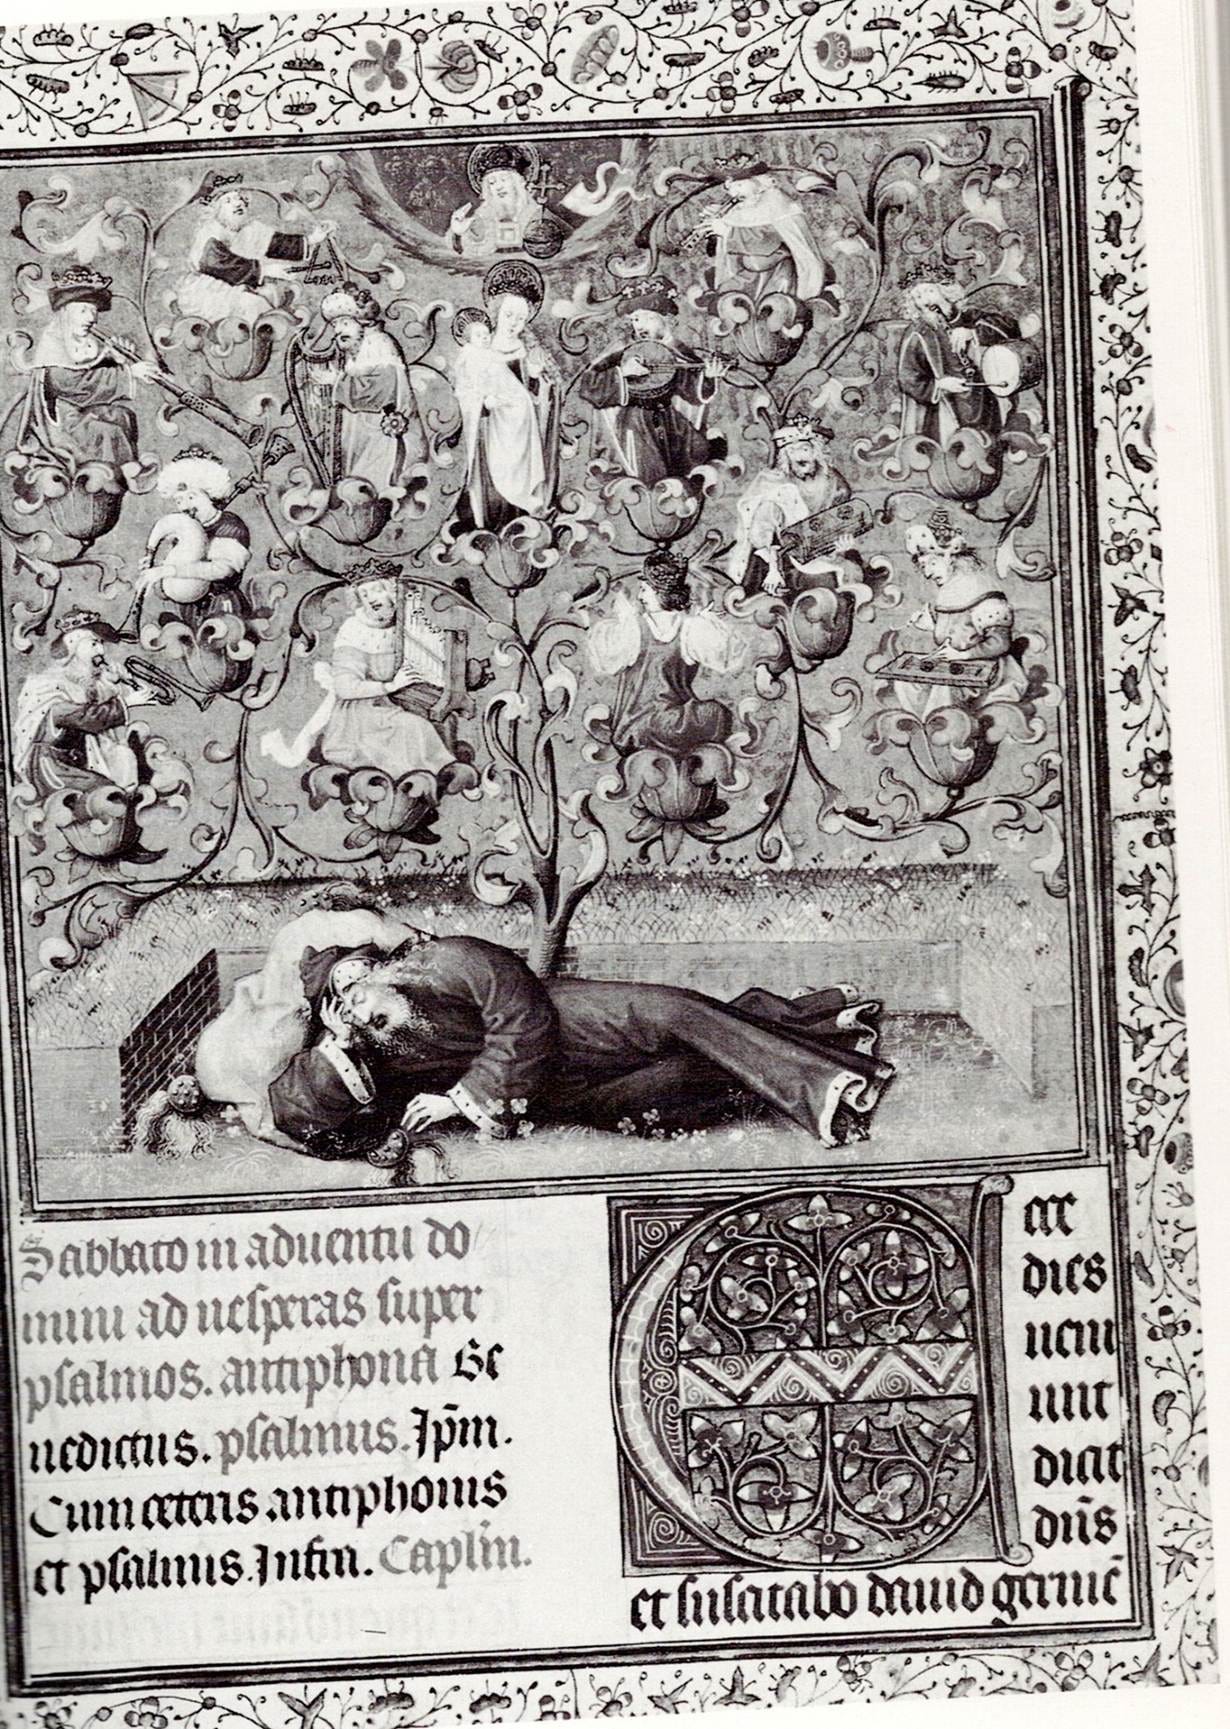 Sabbato in aduentu do
mini ad uesperas super
psalmos. antiphona Be
nedictus. psalmus. Ip̄m.
Cum ceteris antiphonis
et psalmis. Infin. Caplm̄.
Ecce
dies
ueni
unt
dicit
dn̄s
et suscitabo dauid germē